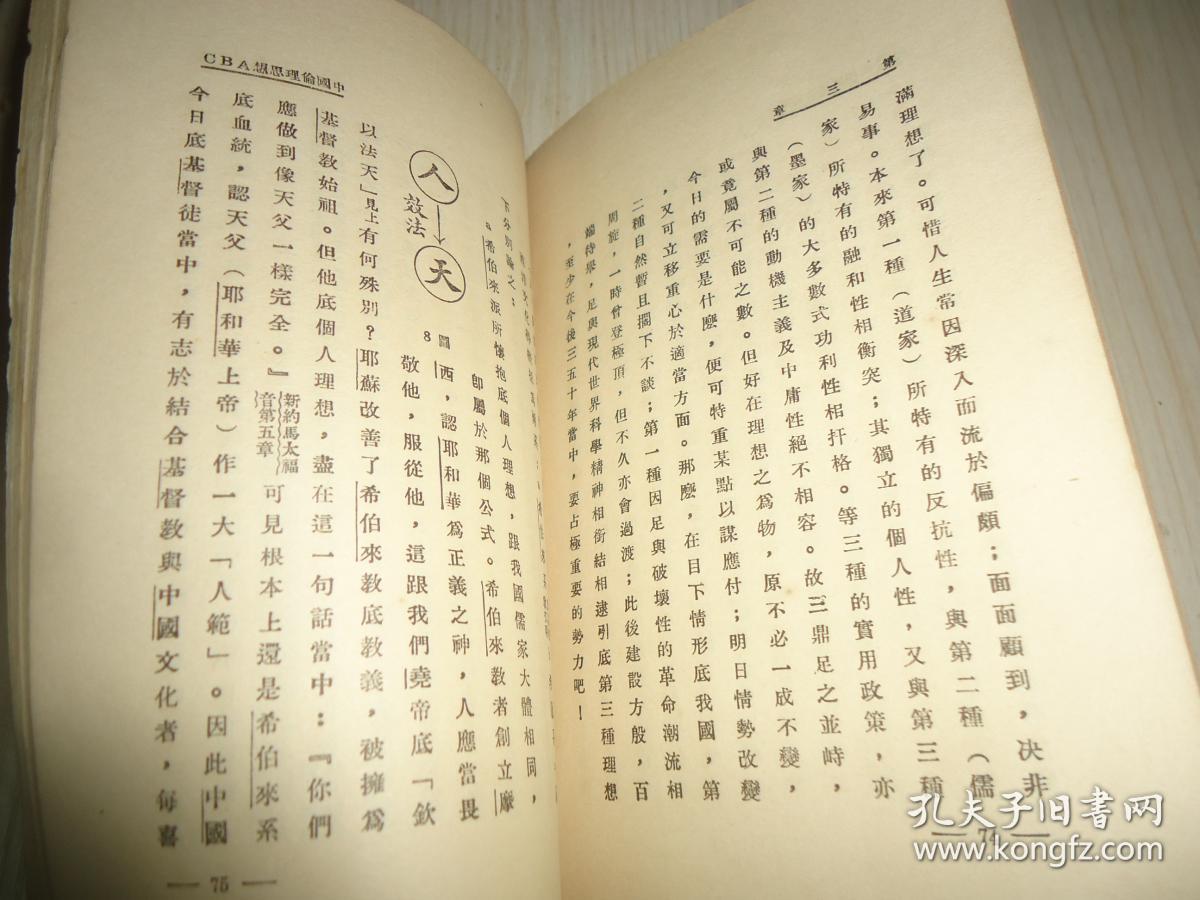 第三章
滿理想了。可惜人生常因深入而流於偏頗；面面顧到，決非
易事。本來第一種（道家）所特有的反抗性，與第二種（儒
家）所特有的融和性相衝突；其獨立的個人性，又與第三種
（墨家）的大多數式功利性相扞格。等三種的實用政策，亦
與第二種的動機主義及中庸性絕不相容。故三鼎足之並峙，
或竟屬不可能之數。但好在理想之爲物，原不必一成不變，
今日的需要是什麼，便可特重某點以謀應付；明日情勢改變
，又可立移重心於適當方面。那麼，在目下情形底我國，第
二種自然暫且擱下不談；第一種因足與破壞性的革命潮流相
周旋，一時曾登極頂，但不久亦會過渡；此後建設方殷，百
端待舉，足與現代世界科學精神相銜結相逮引底第三種理想
，至少在今後三五十年當中，要占極重要的勢力吧！
— 74 —
CBA想思理倫國中
下分別論之：
a 希伯來派所懷抱底個人理想，跟我國儒家大體相同，
即屬於那個公式。希伯來教者創立摩
西，認耶和華爲正義之神，人應當畏
敬他，服從他，這跟我們堯帝底「欽
圖8
人
效法
天
以法天」見上有何殊別？耶蘇改善了希伯來教底教義，被擁爲
基督教始祖。但他底個人理想，盡在這一句話當中：『你們
應做到像天父一樣完全。』新約馬太福音第五章可見根本上還是希伯來系
底血統，認天父（耶和華上帝）作一大「人範」。因此中國
今日底基督徒當中，有志於結合基督教與中國文化者，每喜
— 75 —
孔夫子旧书网
www.kongfz.com